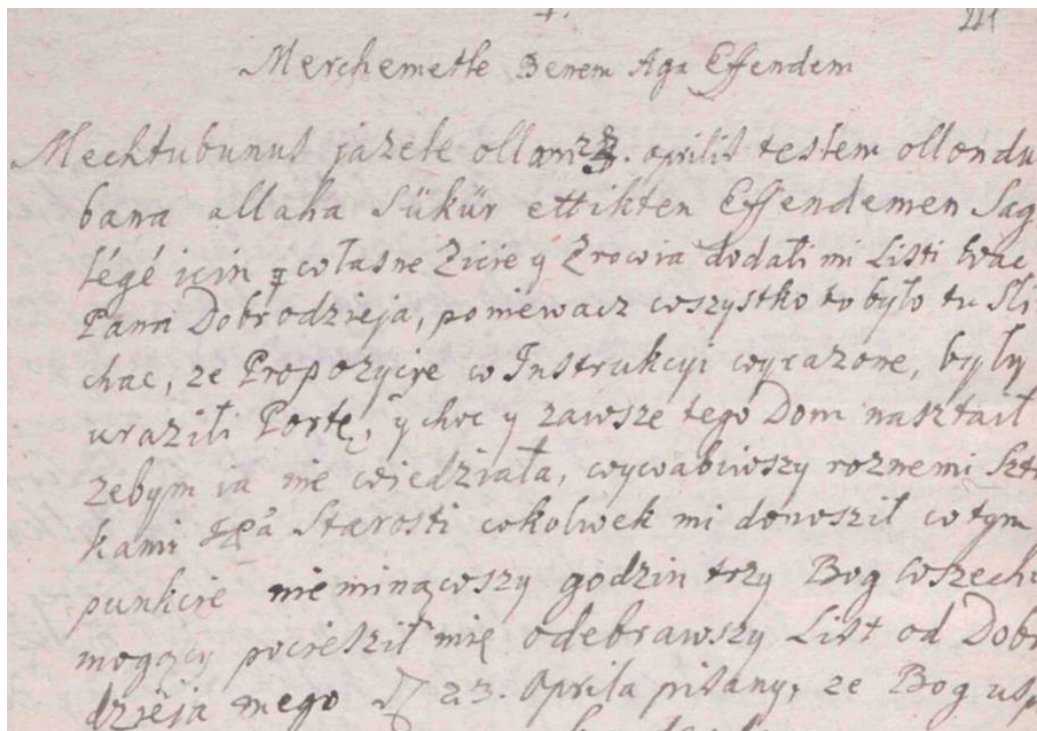 221
Merchemetle Benem Aga Effendem
Mechtubunus jazele ollan 23. Aprilis testem ollondu
bana allaha Sükür ettikten Effendemen Sag
légé icin własne Zicie y Zrowia dodali mi Listi Wac
Pana Dobrodzieja, poniewacz wszystko to było tu Sli
chac, ze Propozycye w Instrukcyi wyrazone, byly
uraziłi Portę, y choc y zawsze tego Dom nasztaił
zebym ia nie wiedziała, wywabiwszy roznemi Sztu
kami Starosti cokolwek mi donosził w tym
punkcie nieminąwszy godzin trzy Bog Wszech
mogący pociesził mię odebrawszy List od Dobr
dzieja mego 23. Aprila pisany, ze Bog usp